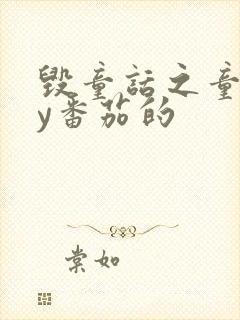 毁童话之童
y番茄的
棠如